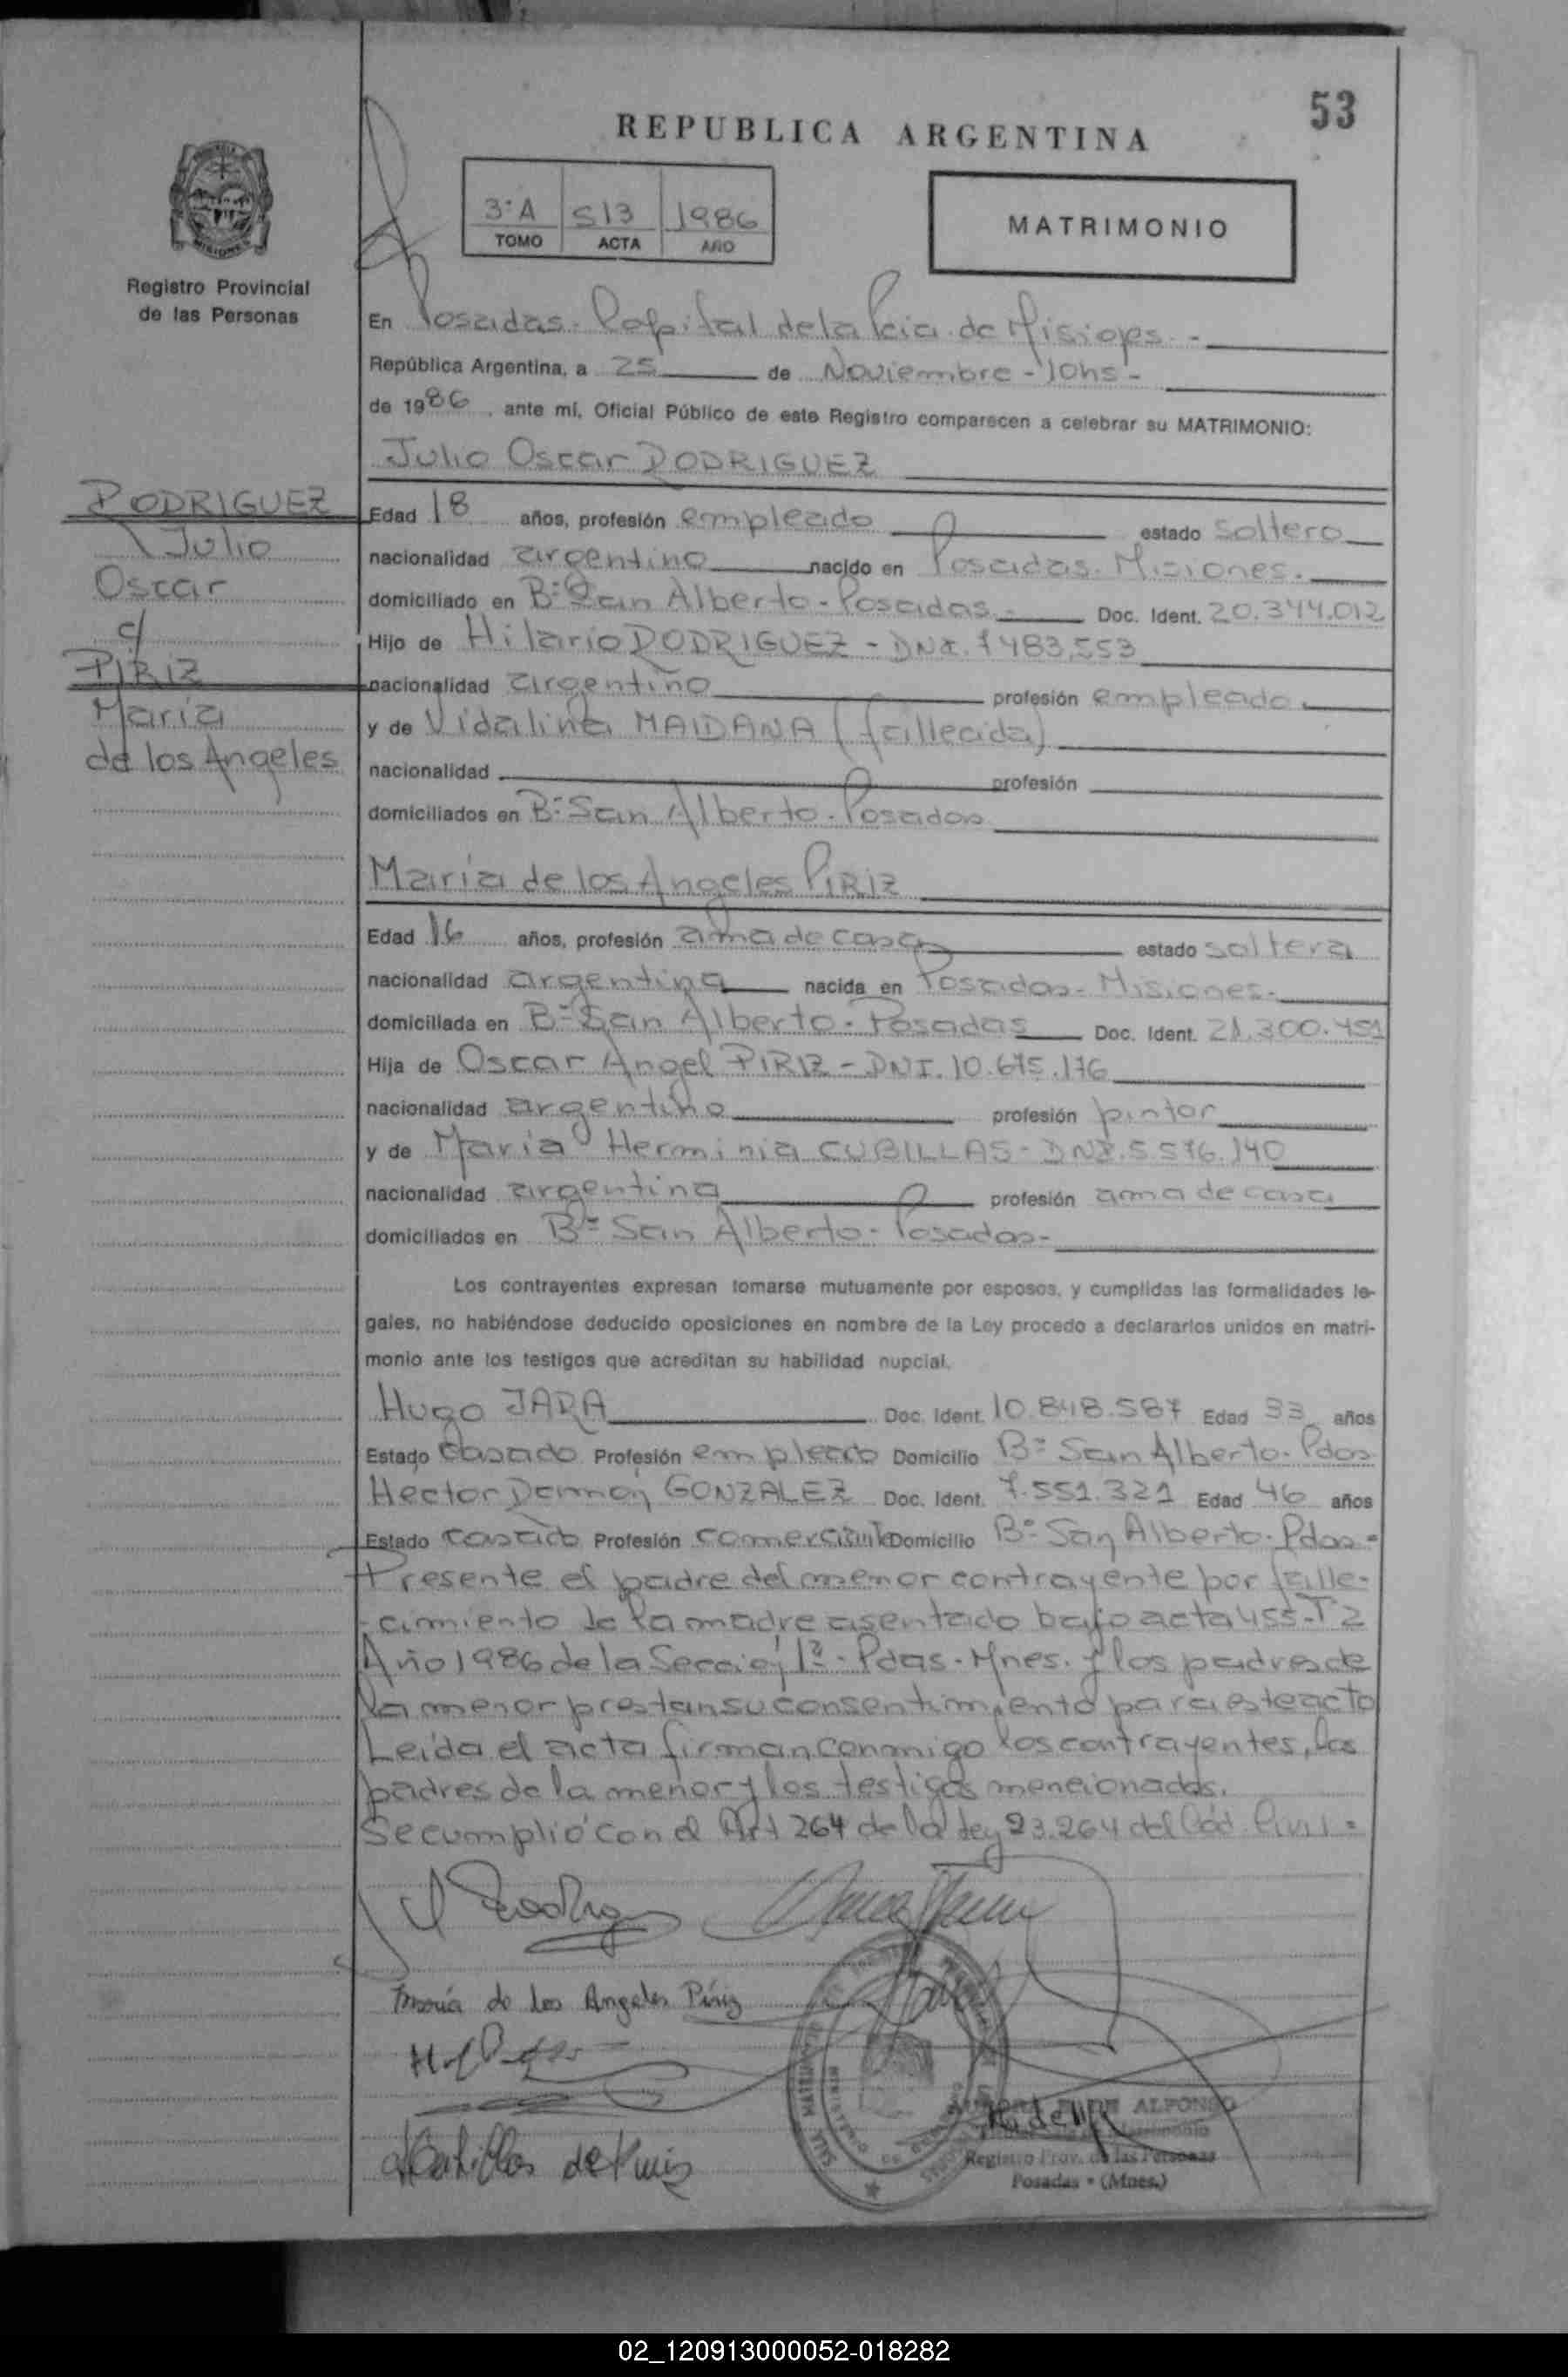 53
REPUBLICA ARGENTINA
3ºA 513 1986
TOMO ACTA AÑO
MATRIMONIO
Registro Provincial
de las Personas
En Posadas. Capital de la Pcia. de Misiones.-
República Argentina, a 25 de Noviembre - 10hs-
de 1986, ante mí, Oficial Público de este Registro comparecen a celebrar su MATRIMONIO:
Julio Oscar RODRIGUEZ
RODRIGUEZ
Julio
Oscar
c/
PIRIZ
Maria
de los Angeles
Edad 18 años, profesión empleado estado soltero
nacionalidad argentino nacido en Posadas. Misiones.
domiciliado en Bº San Alberto - Posadas.- Doc. Ident. 20.344.012
Hijo de Hilario RODRIGUEZ - DNI. 7483.553
nacionalidad argentino profesión empleado
y de Vidalina MAIDANA (fallecida)
nacionalidad profesión
domiciliados en Bº San Alberto. Posadas
María de los Angeles PIRIZ
Edad 16 años, profesión ama de casa estado soltera
nacionalidad argentina nacida en Posadas - Misiones.-
domiciliada en Bº San Alberto - Posadas Doc. Ident. 21.300.451
Hija de Oscar Angel PIRIZ - DNI. 10.675.176
nacionalidad argentino profesión pintor
y de María Herminia CUBILLAS - DNI. 5.576.140
nacionalidad argentina profesión ama de casa
domiciliados en Bº San Alberto - Posadas-
Los contrayentes expresan tomarse mutuamente por esposos, y cumplidas las formalidades le-
gales, no habiéndose deducido oposiciones en nombre de la Ley procedo a declararlos unidos en matri-
monio ante los testigos que acreditan su habilidad nupcial.
Hugo JARA Doc. Ident. 10.848.587 Edad 33 años
Estado casado Profesión empleado Domicilio Bº San Alberto. Pdas
Hector Damián GONZALEZ Doc. Ident. 7.551.321 Edad 46 años
Estado casado Profesión comerciante Domicilio Bº San Alberto. Pdas-
Presente el padre del menor contrayente por falle-
cimiento de la madre asentado bajo acta 455-T2
Año 1986 de la Sección 1ª - Pdas - Mnes. y los padres de
la menor prestan su consentimiento para este acto
Leída el acta firman conmigo los contrayentes, los
padres de la menor y los testigos mencionados.
Se cumplió con el Art 264 de la Ley 23.264 del Cód. Civil-
María de los Angeles Píriz
ALFONSO
Registro Prov. de las Personas
Posadas - (Mnes.)
02_120913000052-018282